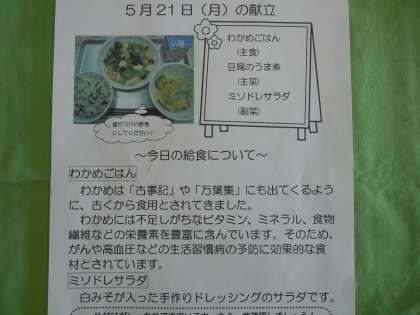 5月21日（月）の献立
わかめごはん
（主食）
豆腐のうま煮
（主菜）
ミソドレサラダ
（副菜）
盛りつけの参考
にしてください！
～今日の給食について～
わかめごはん
わかめは「古事記」や「万葉集」にも出てくるよう
に、古くから食用とされてきました。
わかめには不足しがちなビタミン、ミネラル、食物
繊維などの栄養素を豊富に含んでいます。そのため、
がんや高血圧などの生活習慣病の予防に効果的な食
材とされています。
ミソドレサラダ
白みそが入った手作りドレッシングのサラダです。